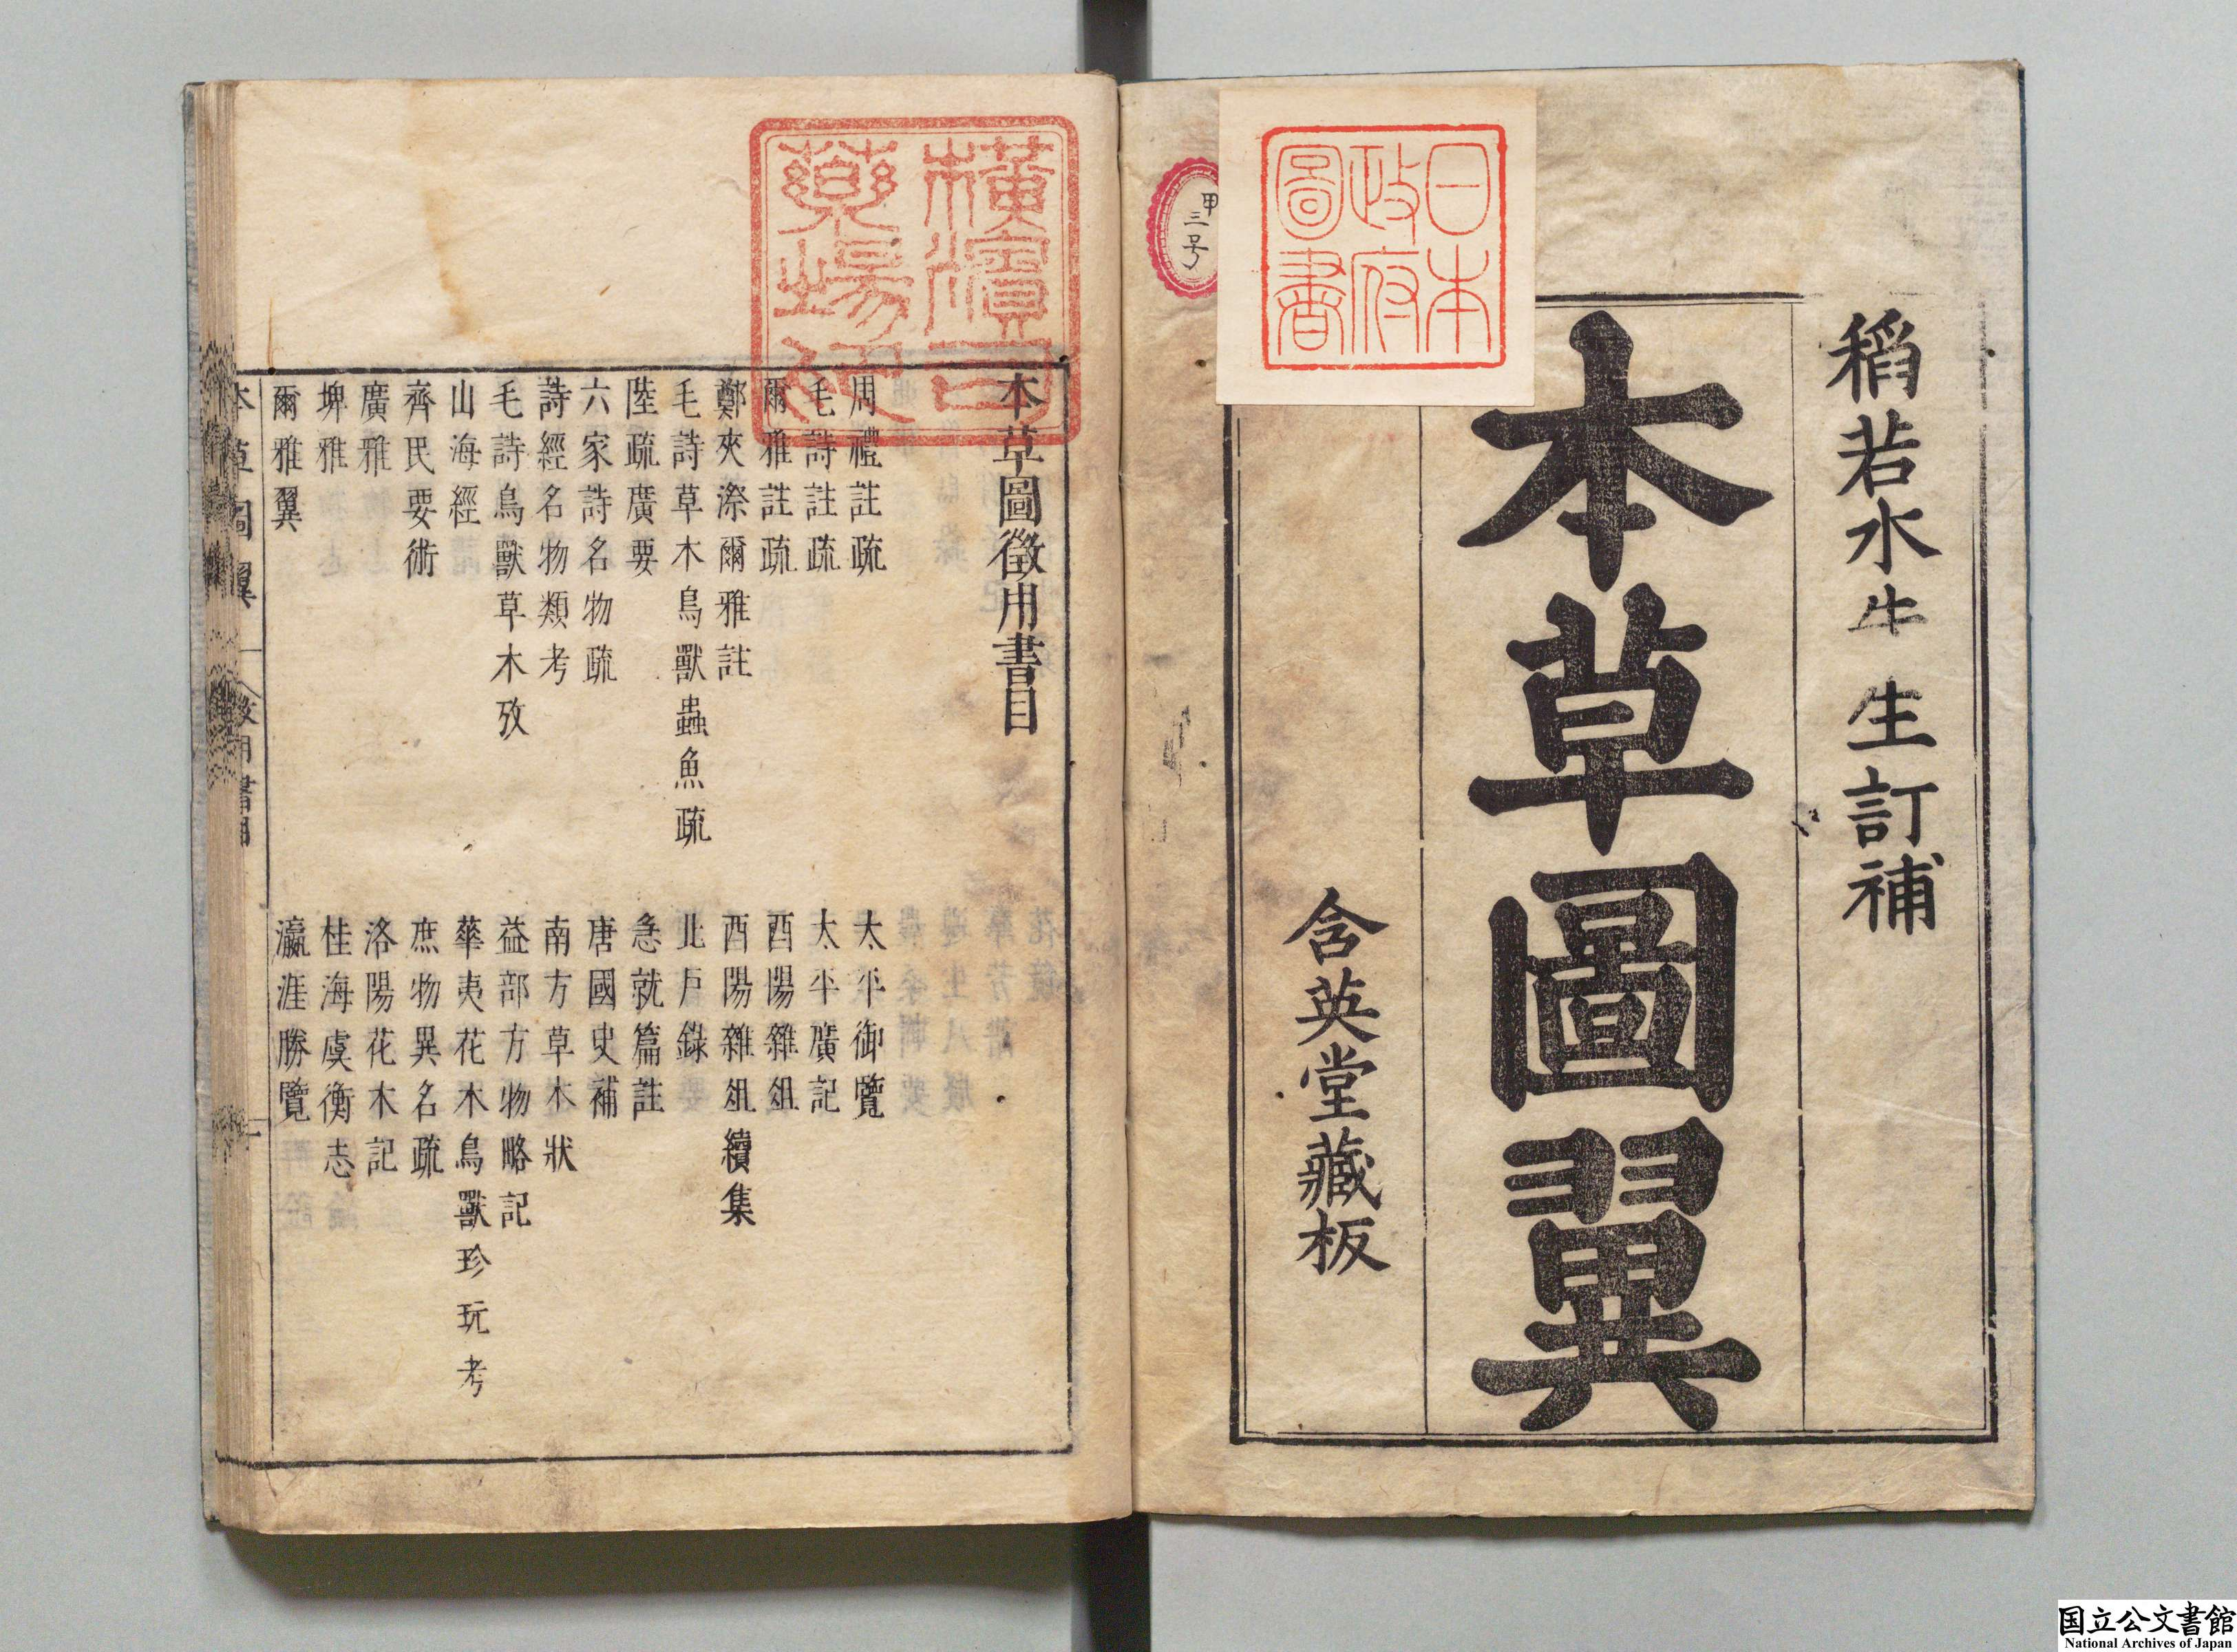 稻若水先生訂補
本草圖翼
含英堂藏板
日本
政府
圖書
甲三号
橫濱司
藥場記
本草圖徵用書目
周禮註疏
毛詩註疏
爾雅註疏
鄭夾漈爾雅註
毛詩草木鳥獸蟲魚疏
陸疏廣要
六家詩名物疏
詩經名物類考
毛詩鳥獸草木攷
山海經
齊民要術
廣雅
埤雅
爾雅翼
太平御覽
太平廣記
酉陽雜俎
酉陽雜俎續集
北戶錄
急就篇註
唐國史補
南方草木狀
益部方物略記
華夷花木鳥獸珍玩考
庶物異名疏
洛陽花木記
桂海虞衡志
瀛涯勝覽
本草圖翼
徵用書目
一
国立公文書館
National Archives of Japan